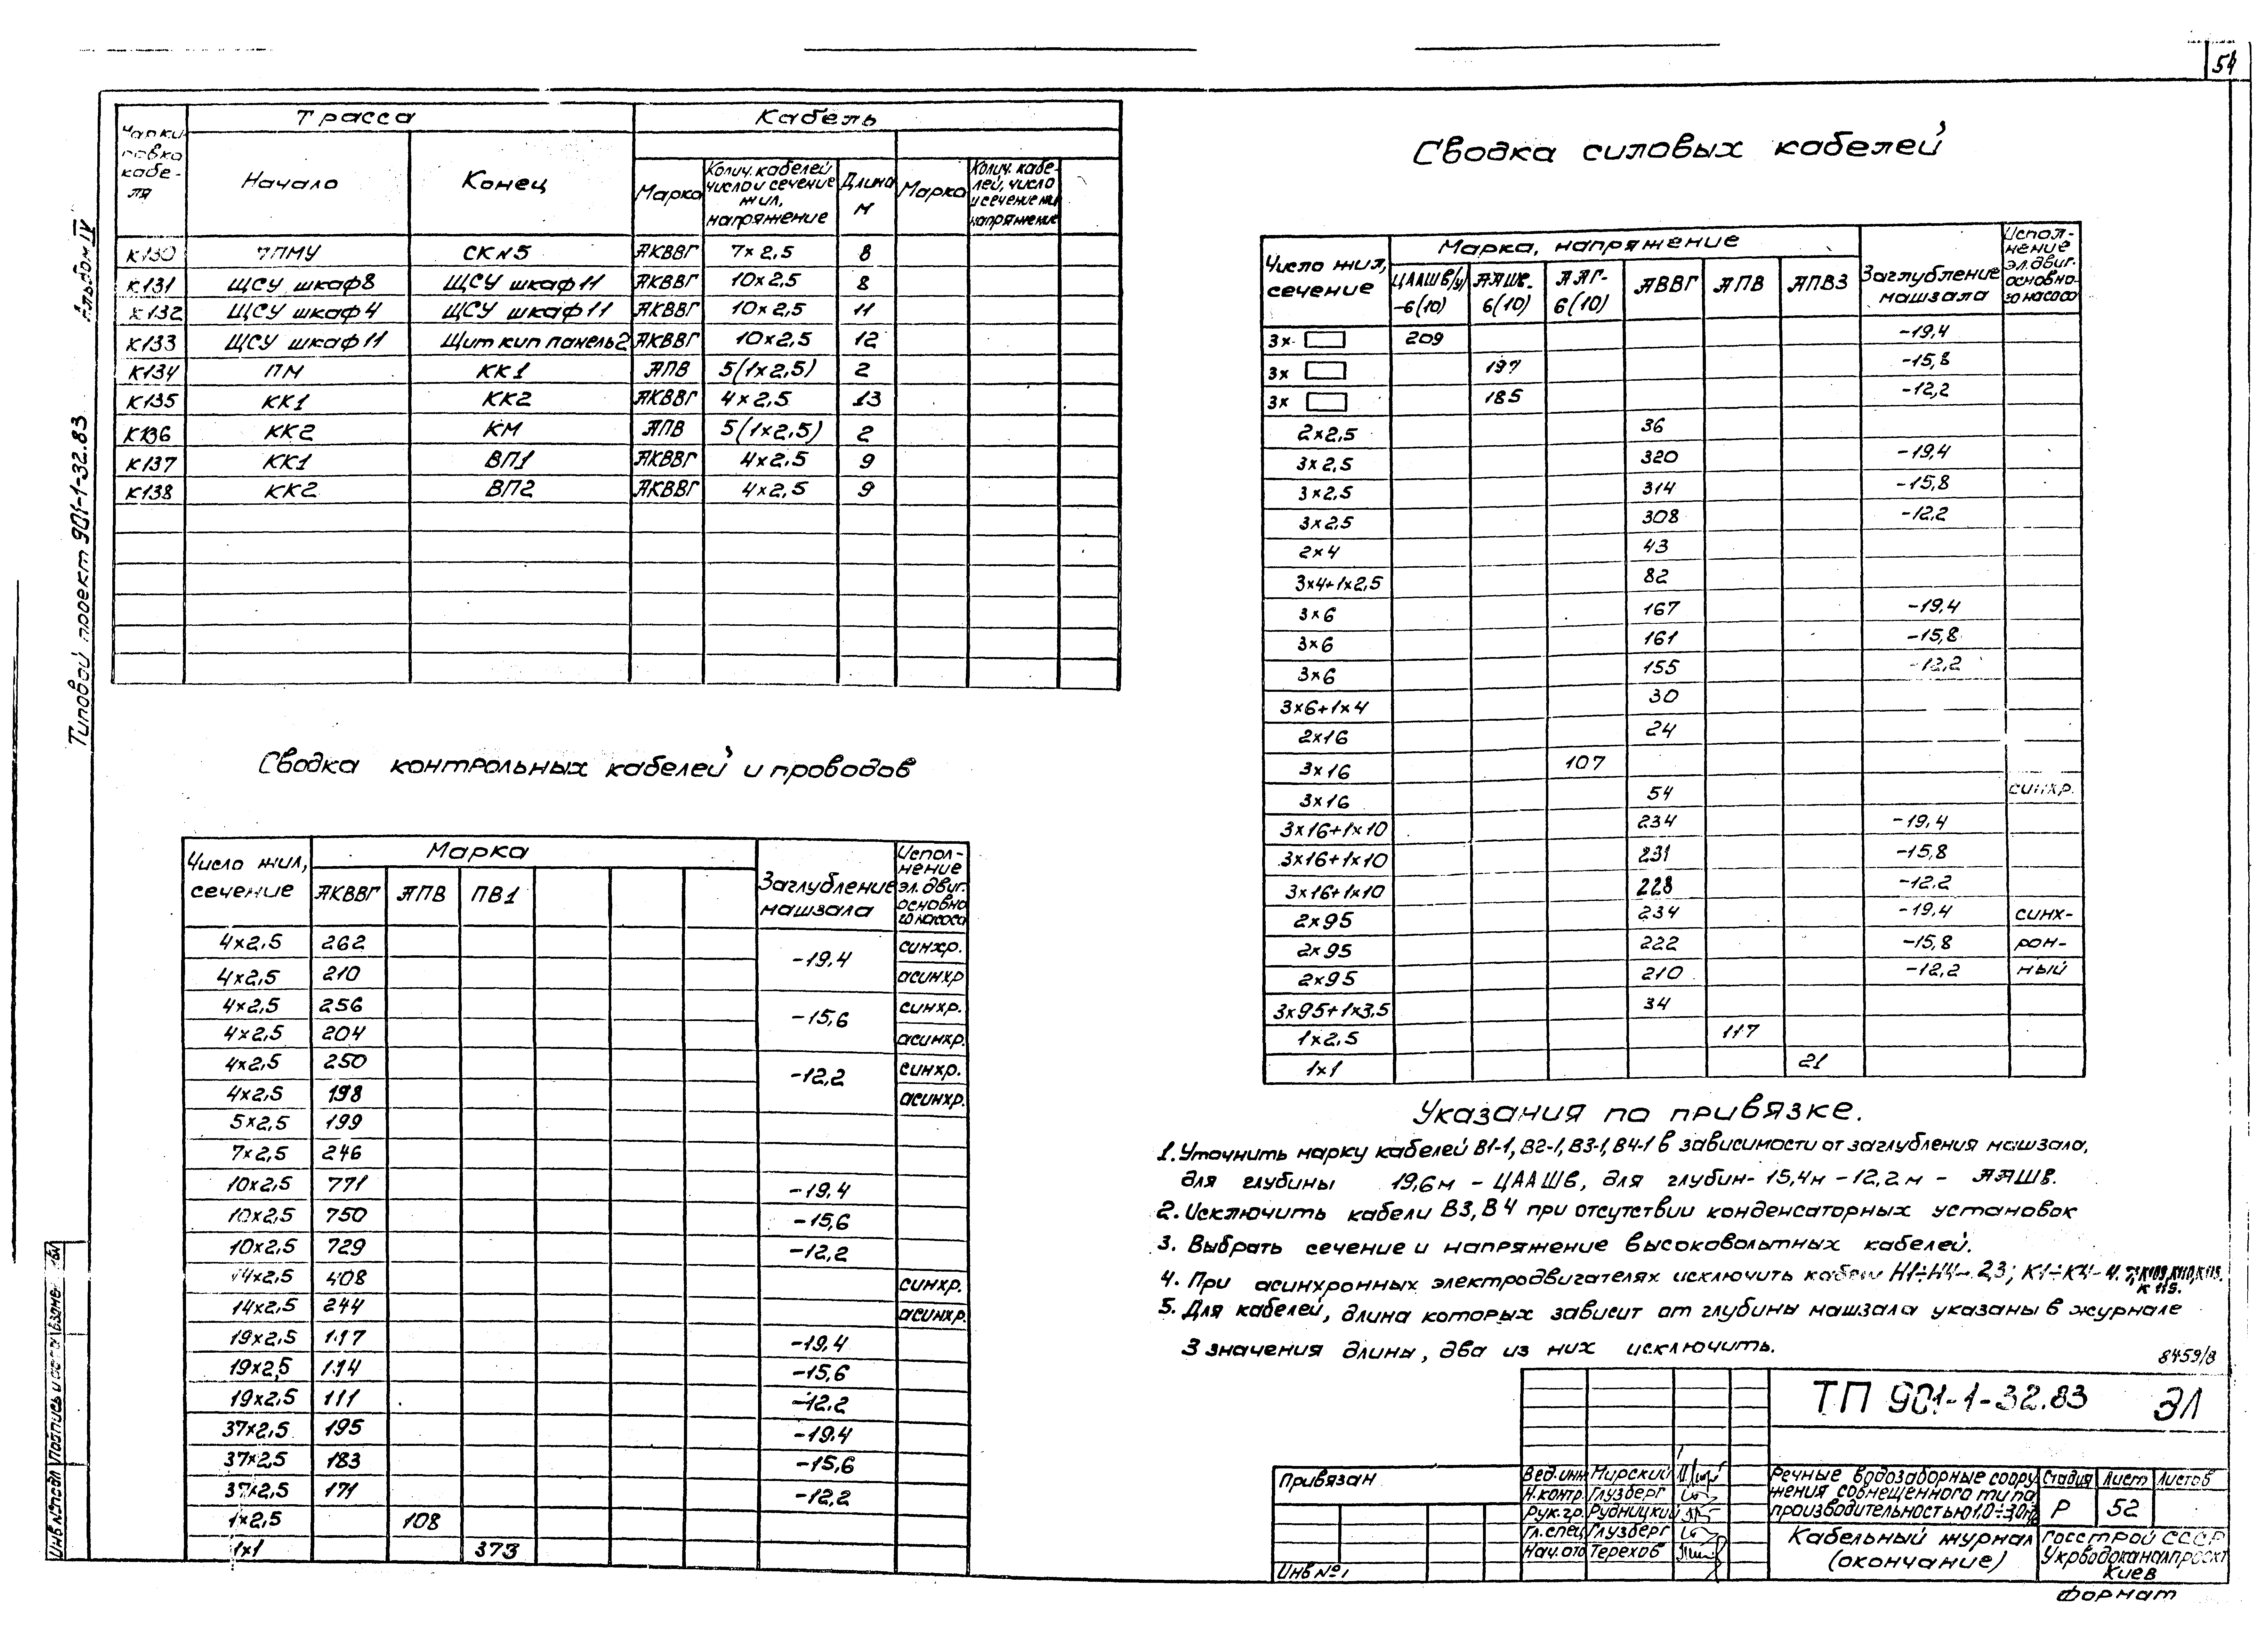 54
Альбом IV
Типовой проект 901-1-32.83
Трасса
Кабель
Начало
Конец
Марка
Колич. кабелей число и сечение жил, напряжение
Длина м
Марка
Колич. кабелей, число и сечение жил напряжение
К130 ППМУ СК№5 АКВВГ 7×2,5 8
К131 ЩСУ шкаф 8 ЩСУ шкаф 11 АКВВГ 10×2,5 8
К132 ЩСУ шкаф 4 ЩСУ шкаф 11 АКВВГ 10×2,5 11
К133 ЩСУ шкаф 11 Щит кип панель 2 АКВВГ 10×2,5 12
К134 ПМ КК1 АПВ 5(1×2,5) 2
К135 КК1 КК2 АКВВГ 4×2,5 13
К136 КК2 КМ АПВ 5(1×2,5) 2
К137 КК1 ВП1 АКВВГ 4×2,5 9
К138 КК2 ВП2 АКВВГ 4×2,5 9
Сводка контрольных кабелей и проводов
Число жил, сечение
Марка
АКВВГ АПВ ПВ1
Заглубление машзала
Исполнение эл. двиг. основного насоса
4×2,5 262 -19,4 синхр.
4×2,5 210 асинхр
4×2,5 256 -15,6 синхр.
4×2,5 204 асинхр.
4×2,5 250 -12,2 синхр.
4×2,5 198 асинхр.
5×2,5 199
7×2,5 246
10×2,5 771 -19,4
10×2,5 750 -15,6
10×2,5 729 -12,2
14×2,5 408 синхр.
14×2,5 244 асинхр.
19×2,5 117 -19,4
19×2,5 114 -15,6
19×2,5 111 -12,2
37×2,5 195 -19,4
37×2,5 183 -15,6
37×2,5 171 -12,2
1×2,5 108
1×1 373
Сводка силовых кабелей
Число жил, сечение
Марка, напряжение
ЦААШв/у -6(10)
ААШв. 6(10)
ААГ- 6(10)
АВВГ АПВ АПВ3
Заглубление машзала
Исполнение эл. двиг. основного насоса
3× 209 -19,4
3× 197 -15,8
3× 185 -12,2
2×2,5 36
3×2,5 320 -19,4
3×2,5 314 -15,8
3×2,5 308 -12,2
2×4 43
3×4+1×2,5 82
3×6 167 -19,4
3×6 161 -15,8
3×6 155 -12,2
3×6+1×4 30
2×16 24
3×16 107
3×16 54 синхр.
3×16+1×10 234 -19,4
3×16+1×10 231 -15,8
3×16+1×10 228 -12,2
2×95 234 -19,4 синх-
2×95 222 -15,8 рон-
2×95 210 -12,2 ный
3×95+1×3,5 34
1×2,5 117
1×1 21
Указания по привязке.
1. Уточнить марку кабелей В1-1, В2-1, В3-1, В4-1 в зависимости от заглубления машзала,
для глубины 19,6м - ЦААШв, для глубин- 15,4м -12,2м - ААШв.
2. Исключить кабели В3, В4 при отсутствии конденсаторных установок
3. Выбрать сечение и напряжение высоковольтных кабелей.
4. При асинхронных электродвигателях исключить кабели Н1÷Н4- 23; К1÷К4-
5. Для кабелей, длина которых зависит от глубины машзала указаны в журнале
3 значения длины, два из них исключить.
8459/8
ТП 901-1-32.83 ЭЛ
Привязан
Инв №
Вед.инж Мирский
Н.контр. Глузберг
Рук.гр. Рудницкий
Гл.спец Глузберг
Нач.отд Терехов
Речные водозаборные соору
жения совмещенного типа
производительностью 1,0÷3,0
Стадия Лист Листов
Р 52
Кабельный журнал
(окончание)
Госстрой СССР
Укрводоканалпроект
Киев
Формат